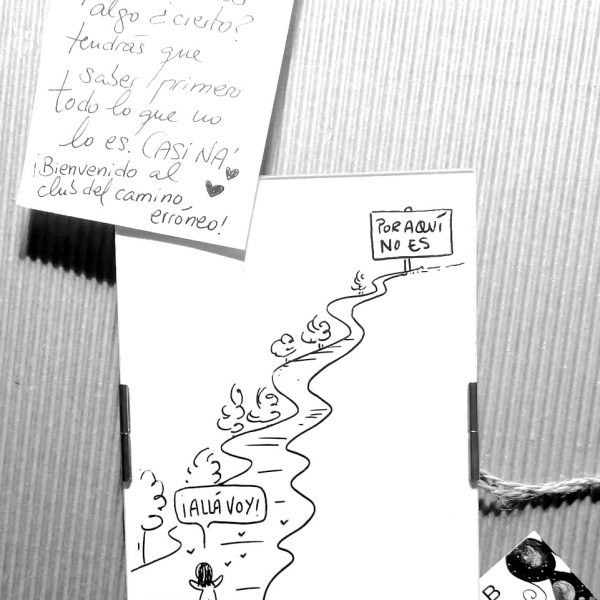 algo ¿cierto?
tendrás que
saber primero
todo lo que no
lo es. CASI NA'
¡Bienvenido al
club del camino
erróneo!
POR AQUÍ
NO ES
¡ALLÁ VOY!
B